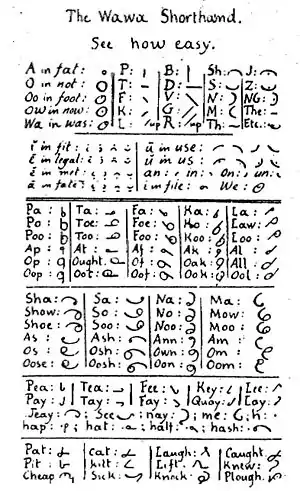 The Wawa Shorthand.
See how easy.
A in fat: P: B: Sh: J:
O in not: T: D: S: Z:
Oo in foot: F: V: N: NG:
Ow in now: K: G: M: The:
Wa in was: L: /up R: /up Th: Etc.:
ĭ in fit: ū in use:
ē in legal: ŭ in us:
ĕ in met: an: in: On: un:
ā in fate: i in file: We:
Pa: Ta: Fa: Ka: La:
Po: Toe: Foe: Ko: Law:
Poo: Too: Foo: Koo: Loo:
Ap: At: Af: Ak: Al:
Op: Ought: Of: Oak: All:
Oop: Oot: Oof: Ook: Ool:
Sha: Sa: Na: Ma:
Show: So: No: Mow:
Shoe: Soo: Noo: Moo:
As: Ash: Ann: Am:
Os: Osh: Own: Om:
Oose: Oosh: Oon: Oom:
Pea: Tea: Fee: Key: Lee:
Pay: Tay: Fay: Quay: Lay:
Jeay: See: nay: me: h:
hap: hat: half: hash:
Pat: Cat: Laugh: Caught
Pit: Kilt: Lift: Knew:
Cheap Sick: Knock Plough.